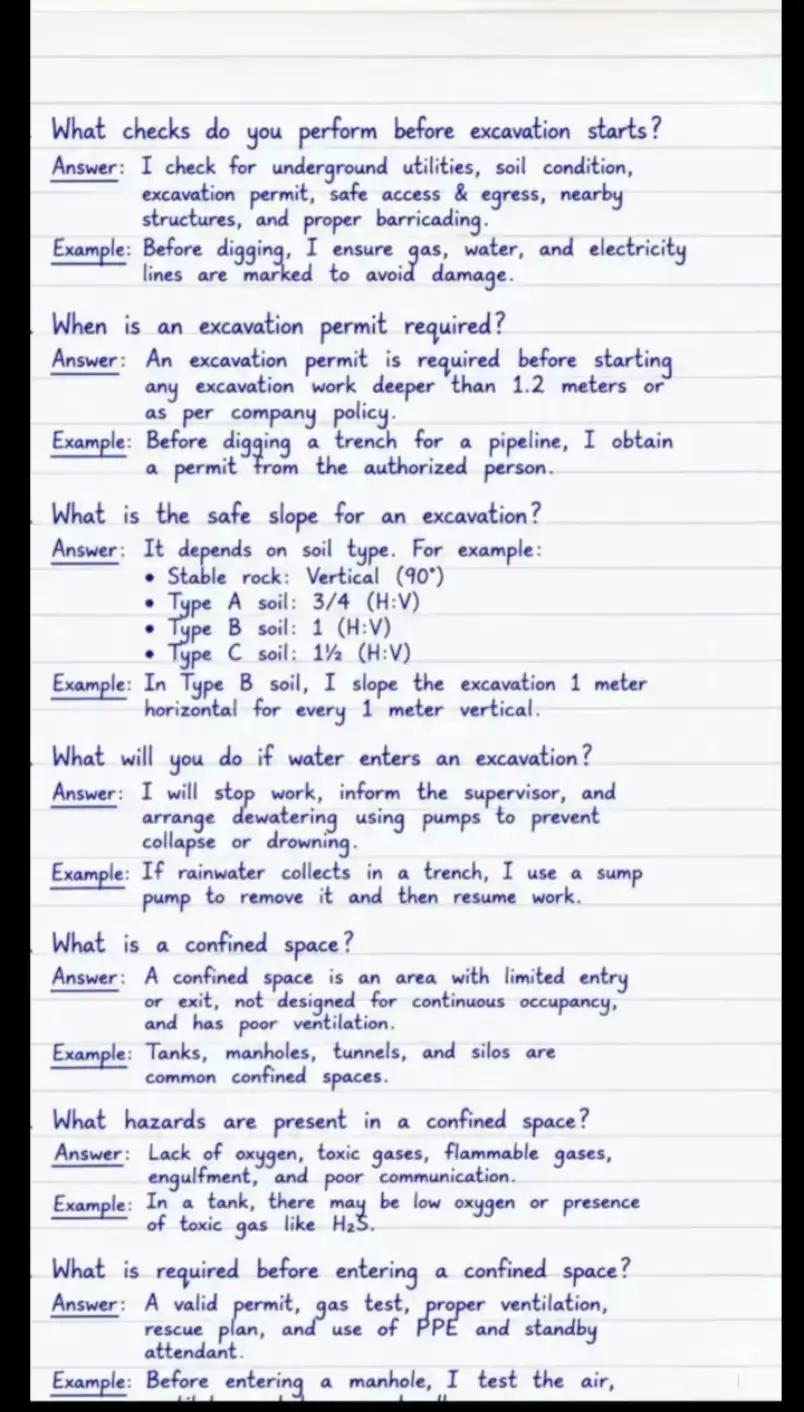 What checks do you perform before excavation starts?
Answer: I check for underground utilities, soil condition,
excavation permit, safe access & egress, nearby
structures, and proper barricading.
Example: Before digging, I ensure gas, water, and electricity
lines are marked to avoid damage.
When is an excavation permit required?
Answer: An excavation permit is required before starting
any excavation work deeper than 1.2 meters or
as per company policy.
Example: Before digging a trench for a pipeline, I obtain
a permit from the authorized person.
What is the safe slope for an excavation?
Answer: It depends on soil type. For example:
• Stable rock: Vertical (90°)
• Type A soil: 3/4 (H:V)
• Type B soil: 1 (H:V)
• Type C soil: 1½ (H:V)
Example: In Type B soil, I slope the excavation 1 meter
horizontal for every 1 meter vertical.
What will you do if water enters an excavation?
Answer: I will stop work, inform the supervisor, and
arrange dewatering using pumps to prevent
collapse or drowning.
Example: If rainwater collects in a trench, I use a sump
pump to remove it and then resume work.
What is a confined space?
Answer: A confined space is an area with limited entry
or exit, not designed for continuous occupancy,
and has poor ventilation.
Example: Tanks, manholes, tunnels, and silos are
common confined spaces.
What hazards are present in a confined space?
Answer: Lack of oxygen, toxic gases, flammable gases,
engulfment, and poor communication.
Example: In a tank, there may be low oxygen or presence
of toxic gas like H₂S.
What is required before entering a confined space?
Answer: A valid permit, gas test, proper ventilation,
rescue plan, and use of PPE and standby
attendant.
Example: Before entering a manhole, I test the air,